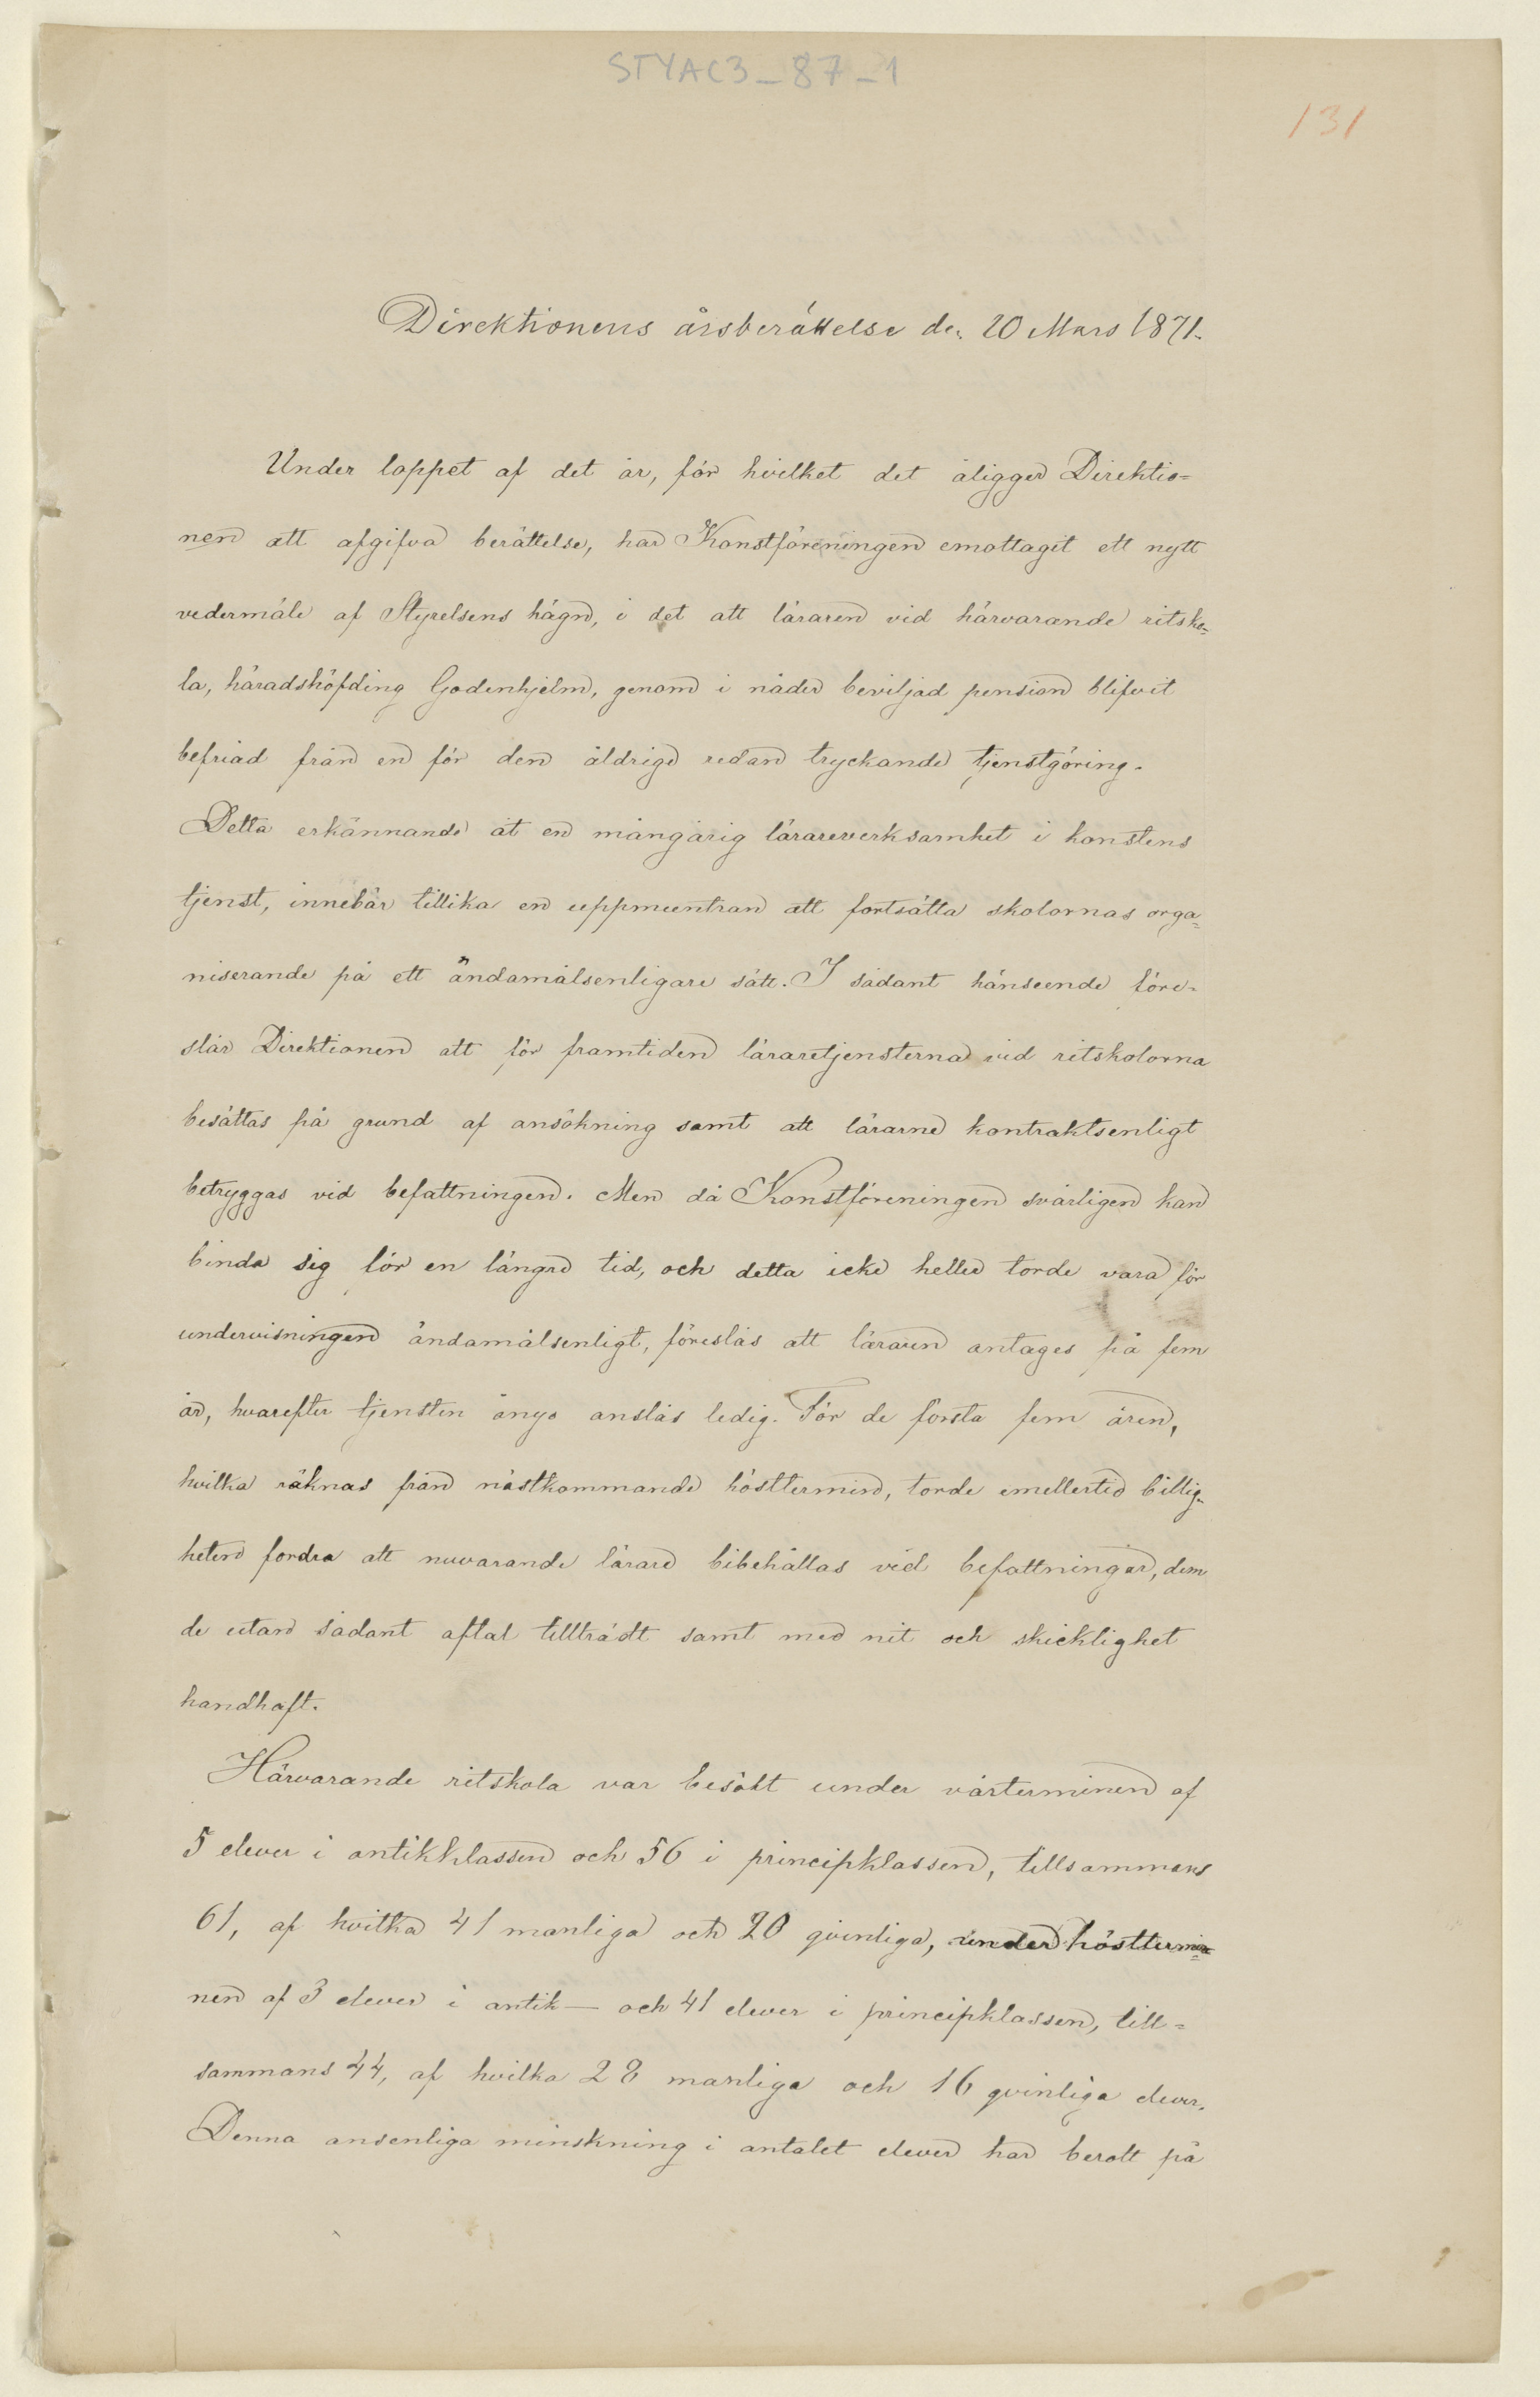 STYAC3_87_1
131
Direktionens årsberättelse de. 20 Mars 1871.
Under loppet af det år, för hvilket det åligger Direktio=
nen att afgifva berättelse, har Konstföreningen emottagit ett nytt
vedermäle af Styrelsens hägn, i det att läraren vid härvarande ritsko=
la, häradshöfding Godenhjelm, genom i nåder beviljad pension blifvit
befriad från en för den åldrige redan tryckande tjenstgöring.
Detta erkännande åt en mångårig lärareverksamhet i konstens
tjenst, innebär tillika en uppmuntran att fortsätta skolornas orga=
niserande på ett ändamålsenligare sätt. I sådant hänseende före=
slår Direktionen att för framtiden läraretjensterna vid ritskolorna
besättas på grund af ansökning samt att lärarne kontraktsenligt
betryggas vid befattningen. Men då Konstföreningen svårligen kan
binda sig för en längre tid, och detta icke heller torde vara för
undervisningen ändamålsenligt, föreslås att läraren antages på fem
år, hvarefter tjensten ånyo anslås ledig. För de första fem åren,
hvilka räknas från nästkommande hösttermin, torde emellertid billig=
heten fordra att nuvarande lärare bibehållas vid befattningar, dem
de utan sådant aftal tillträdt samt med nit och skicklighet
handhaft.
Härvarande ritskola var besökt under vårterminen af
5 elever i antikklassen och 56 i principklassen, tillsammans
61, af hvilka 41 manliga och 20 qvinliga, under höstterminen=
nen af 3 elever i antik— och 41 elever i principklassen, till=
sammans 44, af hvilka 28 manliga och 16 qvinliga elever.
Denna ansenliga minskning i antalet elever har berott på